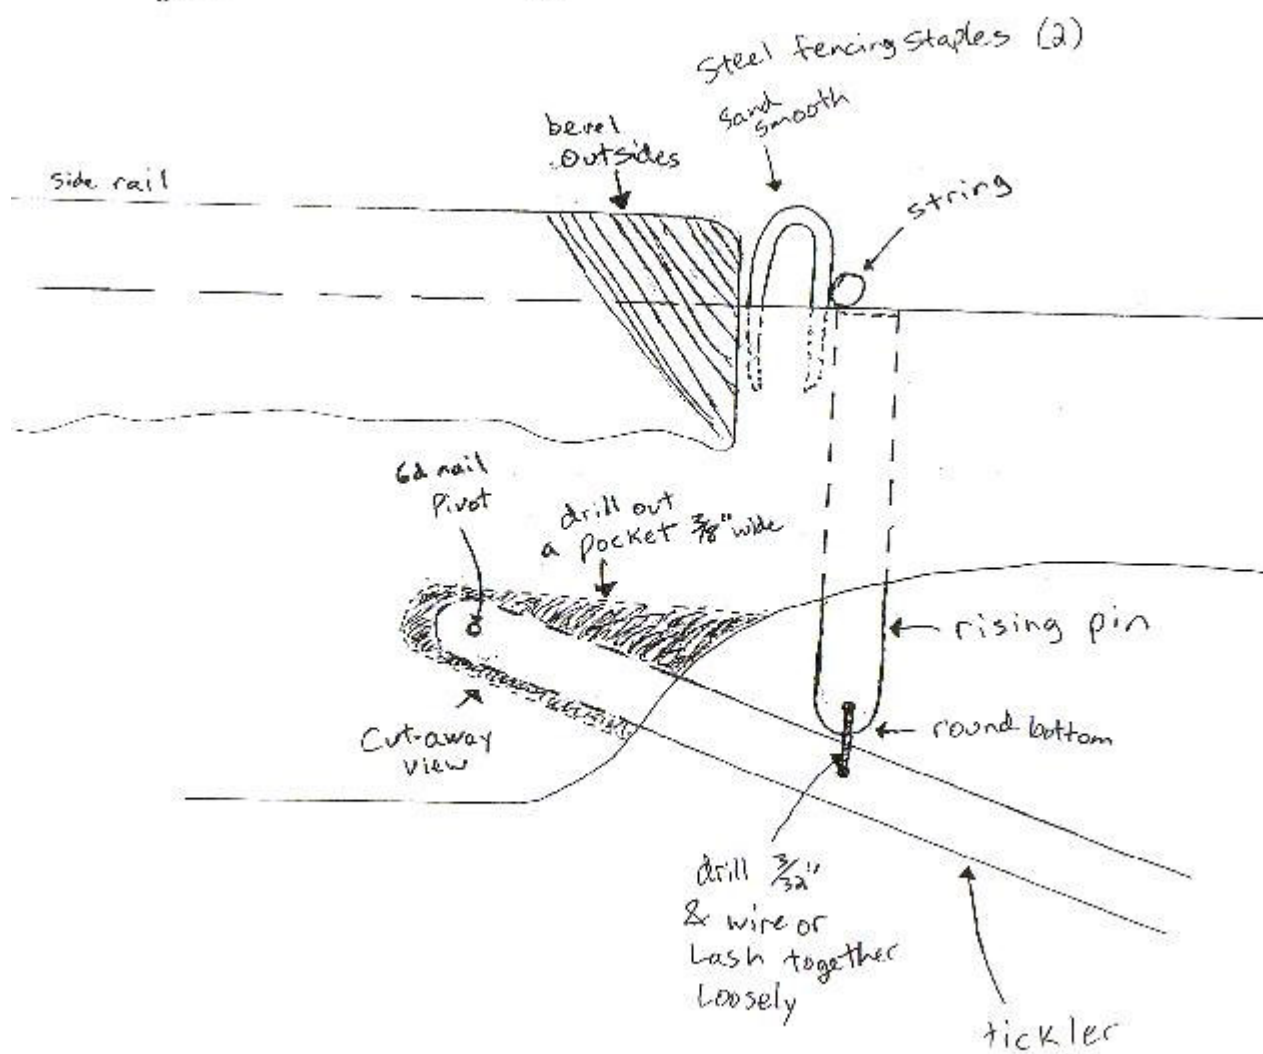 Steel fencing staples (2)
sand
smooth
bevel
outsides
side rail
string
6d nail
pivot
drill out
a pocket 3/8" wide
rising pin
cut-away
view
round bottom
drill 3/32"
& wire or
Lash together
Loosely
tickler